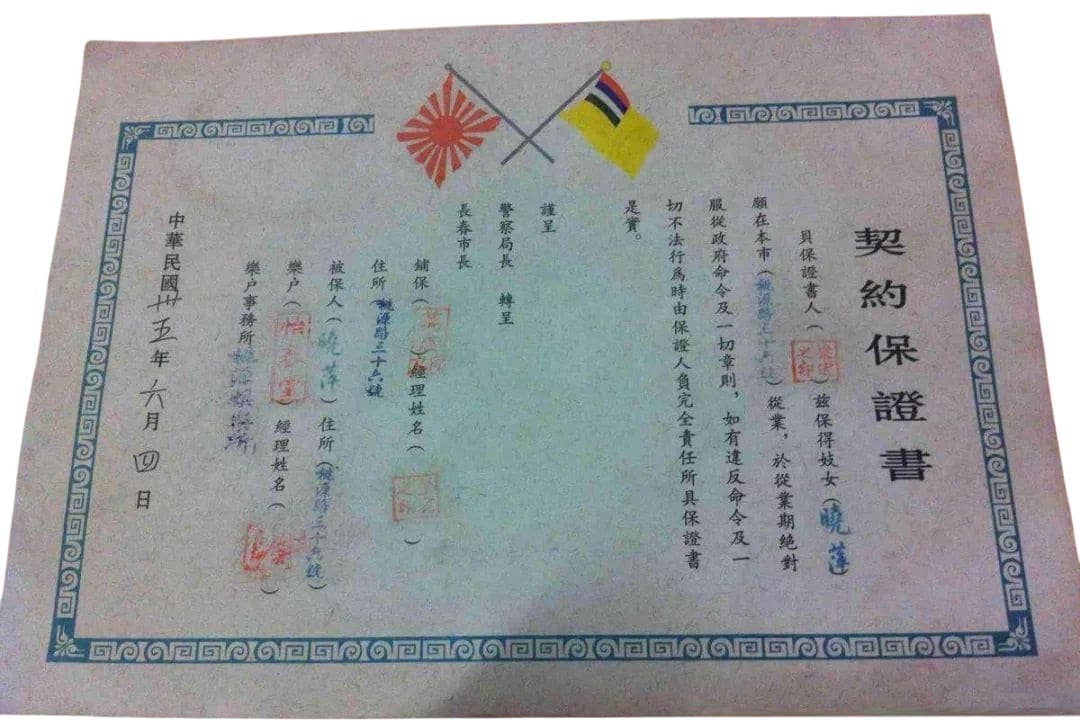 契約保證書
貝保證書人（　）兹保得妓女（曉萍）
願在本市（桃源路三十六號）從業，於從業期絕對
服從政府命令及一切章則，如有違反命令及一
切不法行爲時由保證人負完全責任所具保證書
是實。
謹呈
警察局長　轉呈
長春市長
鋪保（　）經理姓名（　）
住所（桃源路三十六號
被保人（曉萍）住所（桃源路三十六號）
樂户（怡春堂）經理姓名（　）
樂户事務所
中華民國卅五年六月四日